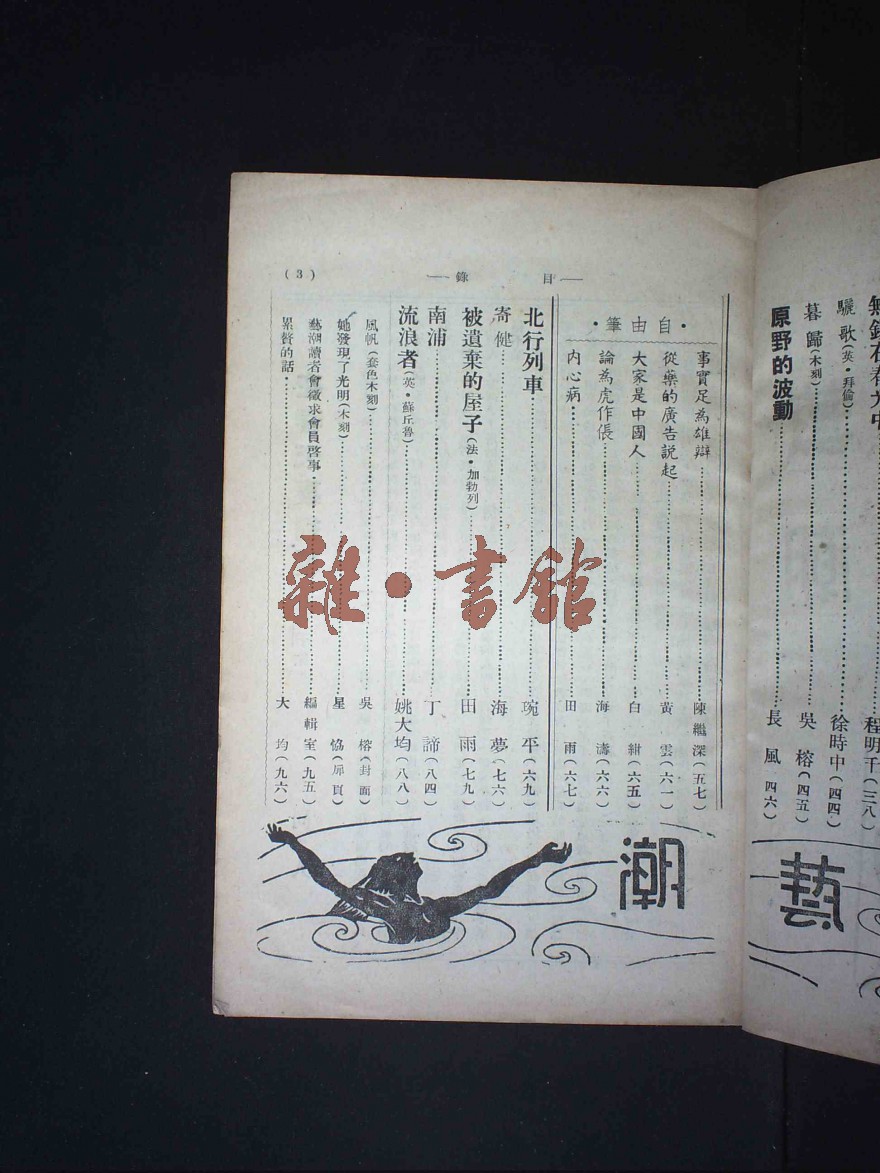 驪歌(英·拜倫)……徐時中(四四)
暮歸(木刻)……吳榕(四五)
原野的波動……長風(四六)
藝
——目錄——
(3)
·自由筆·
事實足為雄辯……陳繼深(五七)
從藥的廣告說起……黃雲(六一)
大家是中國人……白紺(六五)
論為虎作倀……海濤(六六)
內心病……田雨(六七)
北行列車……琬平(六九)
寄健……海夢(七六)
被遺棄的屋子(法·加勃列)……田雨(七九)
南浦……丁諦(八四)
流浪者(英·蘇丘魯)……姚大均(八八)
風帆(套色木刻)……吳榕(封面)
她發現了光明(木刻)……星恊(扉頁)
藝潮讀者會徵求會員啓事……編輯室(九五)
累贅的話……大均(九六)
潮
雜·書館